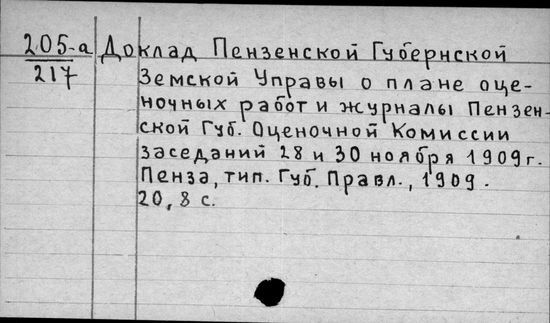 205-а Доклад Пензенской Губернской
217 Земской Управы о плане оце-
ночных работ и журналы Пензен-
ской Губ. Оценочной Комиссии
заседаний 28 и 30 ноября 1909 г.
Пенза, тип. Губ. Правл., 1909.
20, 8 с.